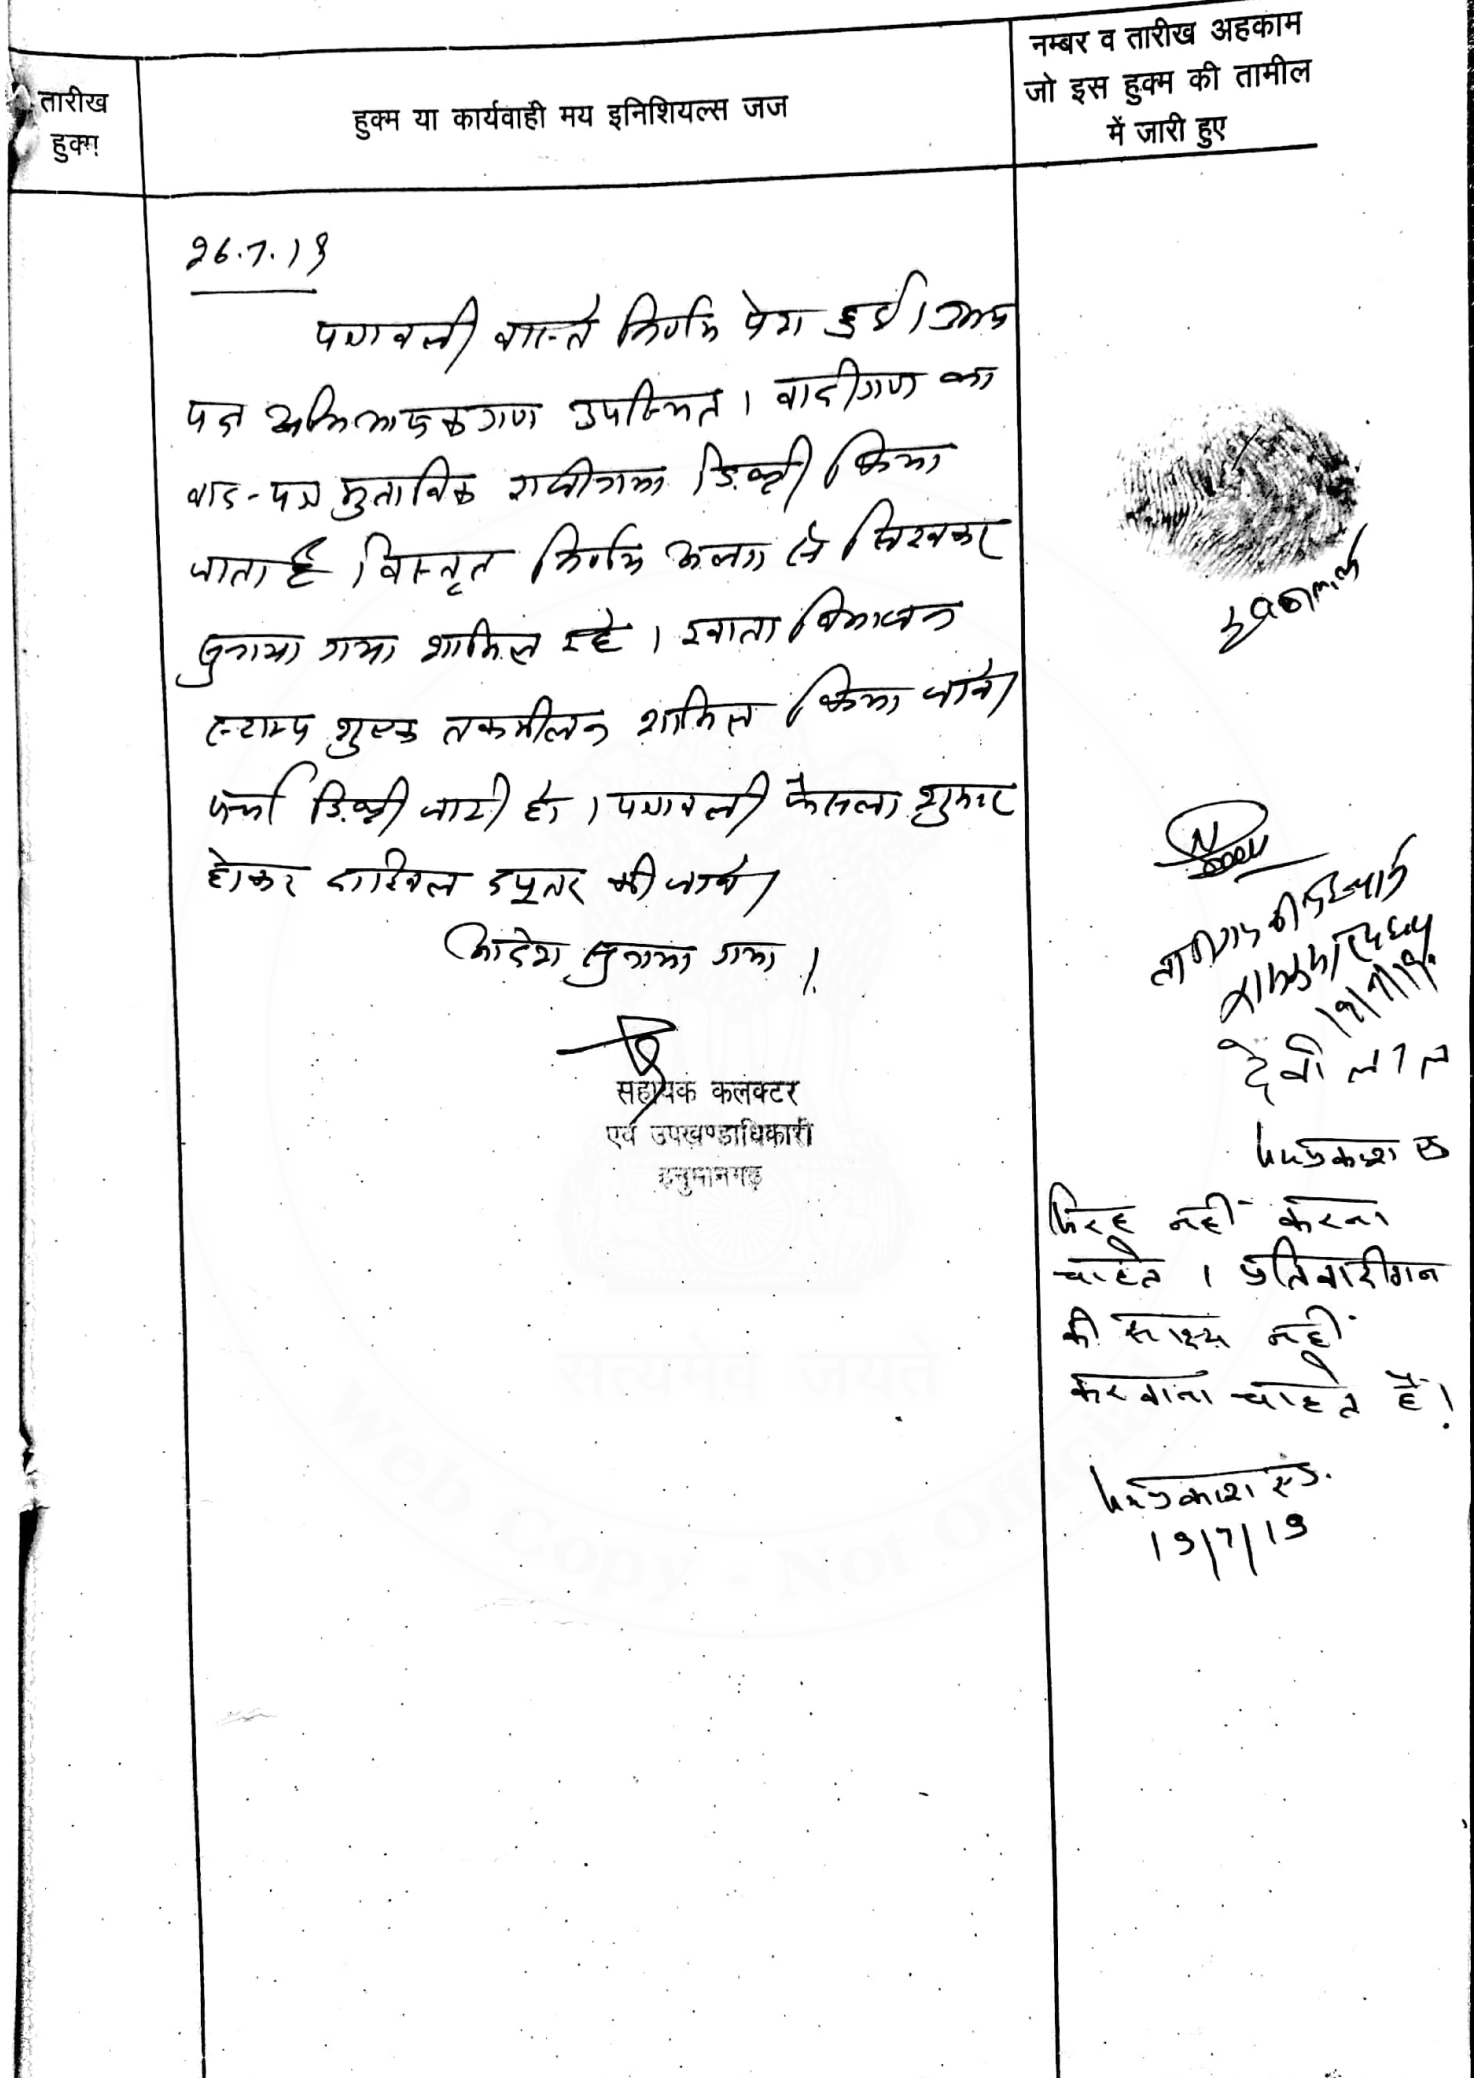 तारीख
हुक्म
हुक्म या कार्यवाही मय इनिशियल्स जज
नम्बर व तारीख अहकाम
जो इस हुक्म की तामील
में जारी हुए
26.7.19
पत्रावली वास्ते निर्णय पेश हुई। उभय
पक्ष अभिभाषकगण उपस्थित। वादीगण का
वाद-पत्र मुताबिक राजीनामा डिक्री किया
जाता है। विस्तृत निर्णय अलग से लिखकर
सुनाया गया शामिल रहे। खाता विभाजन
स्टाम्प शुल्क तकमीलन शामिल किया जावे।
पर्चा डिक्री जारी हो। पत्रावली फैसला शुमार
होकर दाखिल दफ्तर की जावे।
आदेश सुनाया गया।
सहायक कलक्टर
एवं उपखण्डाधिकारी
हनुमानगढ़
देवीलाल
जिरह नहीं करना
चाहते। प्रतिवादीगन
की साक्ष्य नहीं
करवाना चाहते हैं।
19/7/19
सत्यमेव जयते
Web Copy - Not Official